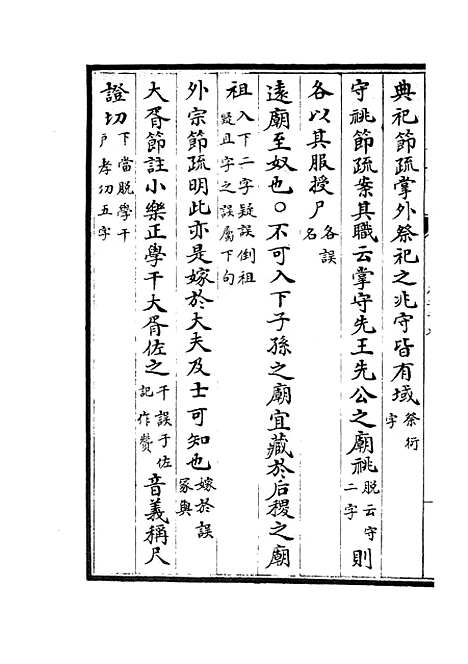 典祀節疏掌外祭祀之兆守皆有域祭衍字
守祧節疏案其職云掌守先王先公之廟祧脫云守二字則
各以其服授尸各誤名
遠廟至奴也○不可入下子孫之廟宜藏於后稷之廟
祖入下二字疑誤倒祖疑且字之誤屬下句
外宗節疏明此亦是嫁於大夫及士可知也嫁於誤冢與
大胥節註小樂正學干大胥佐之干誤于佐記作贊音義稱尺
證切下當脫學干戶孝切五字